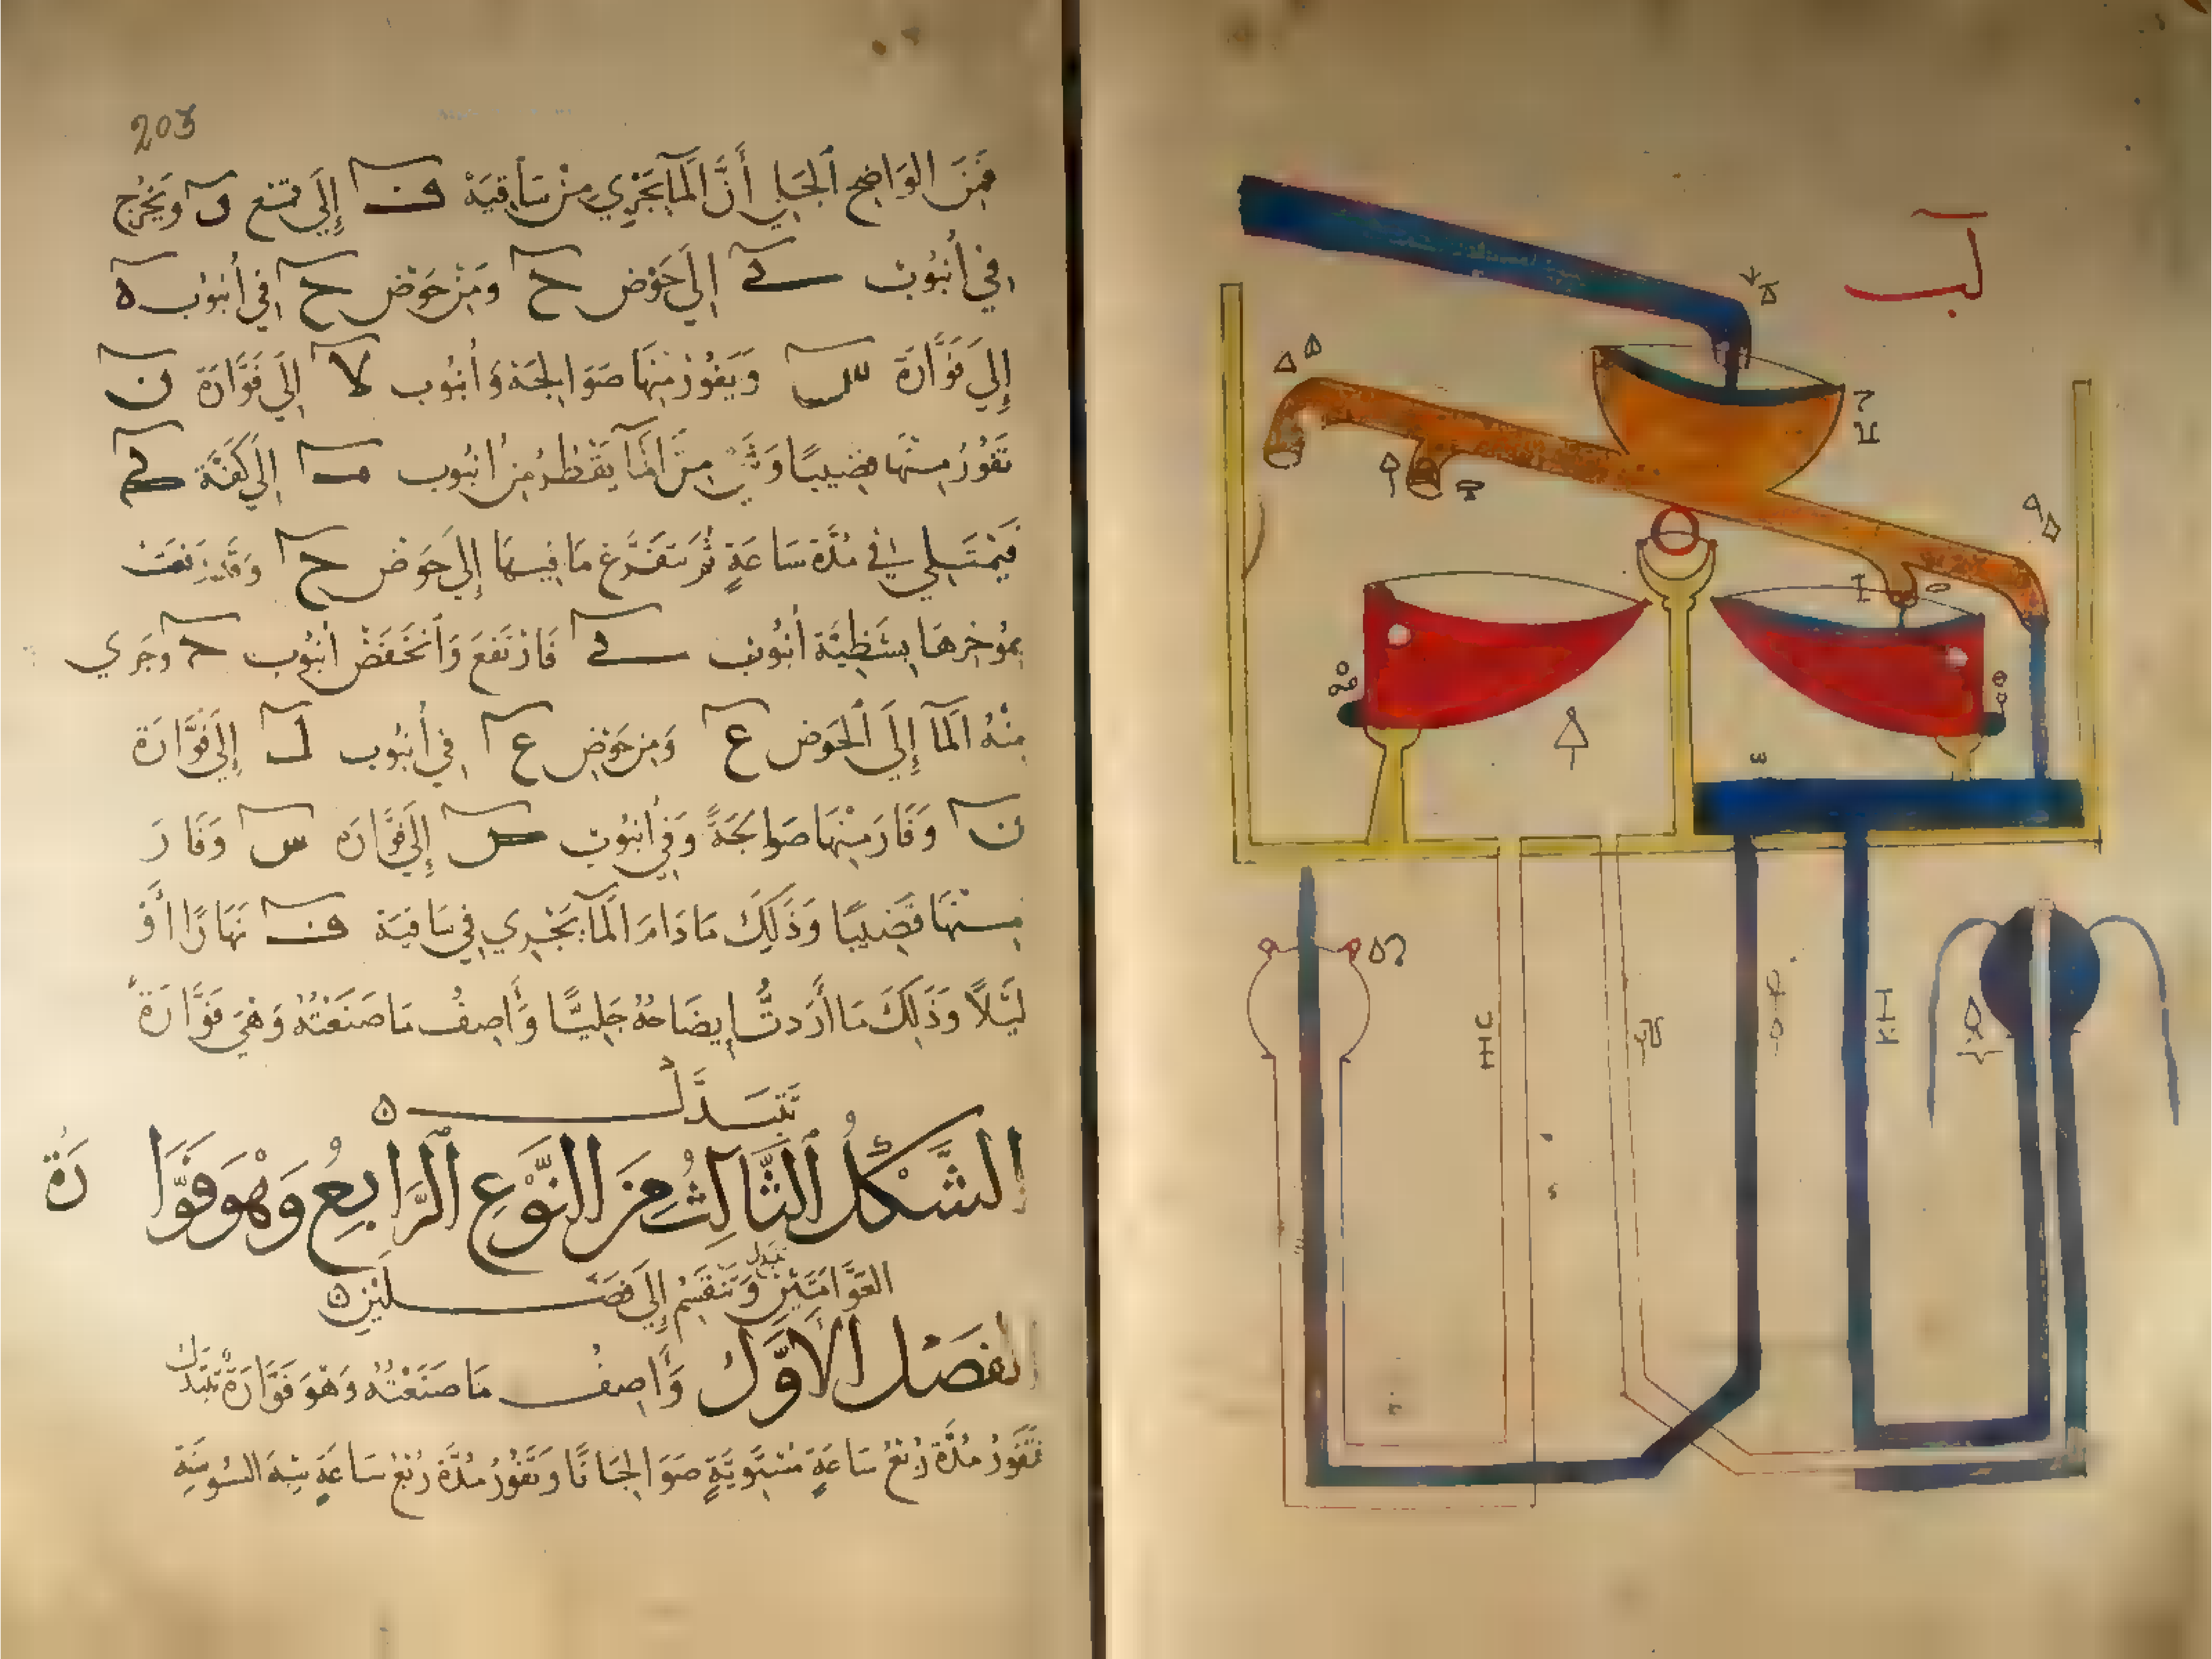 203
فَمِنَ الوَاضِحِ الجَلِي أَنَّ المَآ يَجْرِي مِنْ سَاقِيَة ف إِلَى قمع و وَيَخْرُج
فِي أُنبُوب ي إِلَى حَوْض ح وَمِنْ حَوْض ح فِي أُنبُوب ه
إِلَى فَوَّارَة س وَيَفُورُ مِنْهَا صَوَالِجَة وَأُنبُوب لا إِلَى فَوَّارَة ن
تَفُورُ مِنْهَا قَضِيبًا وَشَيْ مِنَ المَآ يَقْطُرُ مِن أُنبُوب م إِلَى كَفَّة ك
فَيَمْتَلِي فِي مُدَّة سَاعَةٍ ثُمَّ تتفَرَّغ مَا فِيهَا إِلَى حَوْض ح وَقَد رَفَعَت
بِمُوَخِرِهَا بِشَظِيَّة أُنبُوب ي فَارْتَفَعَ وَانْخَفَضَ أُنبُوب ح وَجَرَي
مِنْهُ المَآ إِلَى الحَوْض ع وَمِن حَوْض ع فِي أُنبُوب ل إِلَى فَوَّارَة
ن وَفَارَ مِنْهَا صَوَالِجَةً وَفِي أُنبُوب ص إِلَى فَوَّارَه س وَفَارَ
مِنْهَا قَضِيبًا وَذَلِكَ مَا دَامَ المَآ يَجْرِي فِي سَاقِيَة ف نَهَارًا أَوْ
لَيْلًا وَذَلِكَ مَا أَرَدتُّ إِيضَاحَهُ جَلِيًّا وَأَصِفُ مَا صَنَعْتُهُ وَهْيَ فَوَّارَةٌ
تَتَبَدَّلُ ه
الشَّكْلُ الثَّالِثُ مِنَ النَّوْعِ الرَّابِعِ وَهْوَ فَوَّارَةُ
العَوَّامَتَيْنِ تتبدل وَتَنْقَسِمُ إِلَى فَصْلَيْنِ ه
الفَصْلُ الأَوَّلُ وَأَصِفُ مَا صَنَعْتُهُ وَهْوَ فَوَّارَةٌ تتبدل
تَفُورُ مُدَّة رُبْع سَاعَةٍ مُسْتَوِيَةٍ صَوَالِجَانًا وَتَفُورُ مُدَّة رُبْع سَاعَةٍ شِبْهَ السُوسَنَة
لب